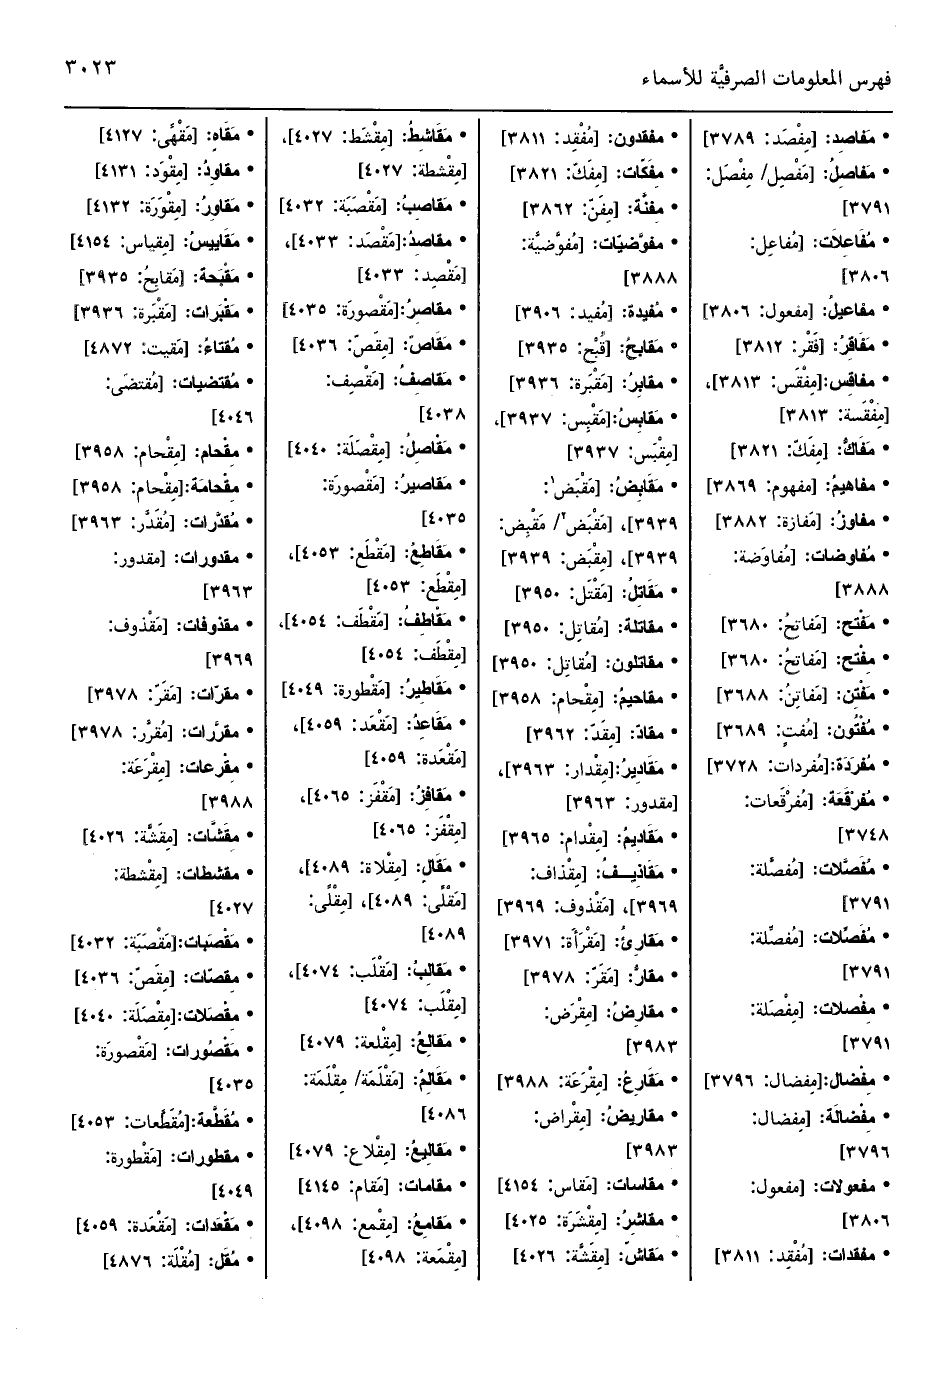 فهرس المعلومات الصرفيَّة للأسماء
٣٠٢٣
• مَفاصد: [مِفْصَد: ٣٧٨٩]
• مَفاصلُ: [مَفْصِل/ مِفْصَل:
٣٧٩١]
• مُفَاعَلات: [مُفاعل:
٣٨٠٦]
• مفاعيلُ: [مفعول: ٣٨٠٦]
• مَفَاقرُ: [فَقْر: ٣٨١٢]
• مفاقس: [مِفْقَس: ٣٨١٣]،
[مِفْقَسة: ٣٨١٣]
• مَفَاكُّ: [مِفَكّ: ٣٨٢١]
• مفاهيمُ: [مفهوم: ٣٨٦٩]
• مفاوزُ: [مَفازة: ٣٨٨٢]
• مُفاوضات: [مُفاوَضة:
٣٨٨٨]
• مَفْتح: [مَفاتحُ: ٣٦٨٠]
• مِفْتح: [مَفاتحُ: ٣٦٨٠]
• مَفْتَن: [مَفاتنُ: ٣٦٨٨]
• مُفْتُون: [مُفتٍ: ٣٦٨٩]
• مُفردَة: [مُفردات: ٣٧٢٨]
• مُفرقَعة: [مُفرْقَعات:
٣٧٤٨]
• مُفَصَّلات: [مُفصَّلة:
٣٧٩١]
• مُفَصِّلات: [مُفصِّلة:
٣٧٩١]
• مفْصلات: [مِفْصَلة:
٣٧٩١]
• مفْضال: [مِفضال: ٣٧٩٦]
• مفْضالَة: [مِفضال:
٣٧٩٦]
• مفعولات: [مفعول:
٣٨٠٦]
• مفقدات: [مُفْقِد: ٣٨١١]
• مفقدون: [مُفْقِد: ٣٨١١]
• مفَكّات: [مِفَكّ: ٣٨٢١]
• مفنَّة: [مِفَنّ: ٣٨٦٢]
• مفوَّضيّات: [مُفوَّضيَّة:
٣٨٨٨]
• مُفيدة: [مُفيد: ٣٩٠٦]
• مَقابحُ: [قُبْح: ٣٩٣٥]
• مَقابرُ: [مَقْبَرة: ٣٩٣٦]
• مَقابسُ: [مَقْبِس: ٣٩٣٧]،
[مِقْبَس: ٣٩٣٧]
• مَقابضُ: [مَقْبَض١:
٣٩٣٩]، [مَقْبَض٢/ مَقْبِض:
٣٩٣٩]، [مِقْبَض: ٣٩٣٩]
• مَقَاتلُ: [مَقْتَل: ٣٩٥٠]
• مقاتلة: [مُقاتِل: ٣٩٥٠]
• مقاتلون: [مُقاتِل: ٣٩٥٠]
• مقاحيمُ: [مِقْحام: ٣٩٥٨]
• مقادّ: [مِقَدّ: ٣٩٦٢]
• مَقَاديرُ: [مِقْدار: ٣٩٦٣]،
[مقدور: ٣٩٦٣]
• مَقَاديمُ: [مِقْدام: ٣٩٦٥]
• مَقَاذيــفُ: [مِقْذاف:
٣٩٦٩]، [مَقْذوف: ٣٩٦٩]
• مَقارئُ: [مَقْرَأَة: ٣٩٧١]
• مَقارُّ: [مَقَرّ: ٣٩٧٨]
• مقارضُ: [مِقْرَض:
٣٩٨٣]
• مَقَارعُ: [مِقْرَعَة: ٣٩٨٨]
• مقاريضُ: [مِقْراض:
٣٩٨٣]
• مقاسات: [مَقاس: ٤١٥٤]
• مقاشرُ: [مِقْشَرَة: ٤٠٢٥]
• مَقاشّ: [مِقَشَّة: ٤٠٢٦]
• مَقَاشطُ: [مِقْشَط: ٤٠٢٧]،
[مِقْشطة: ٤٠٢٧]
• مَقاصبُ: [مَقْصَبَة: ٤٠٣٢]
• مقاصدُ: [مَقْصَد: ٤٠٣٣]،
[مَقْصِد: ٤٠٣٣]
• مقاصرُ: [مَقْصورَة: ٤٠٣٥]
• مَقَاصّ: [مِقَصّ: ٤٠٣٦]
• مَقاصفُ: [مَقْصِف:
٤٠٣٨]
• مَقَاصلُ: [مِقْصَلَة: ٤٠٤٠]
• مَقاصيرُ: [مَقْصورَة:
٤٠٣٥]
• مَقَاطعُ: [مَقْطَع: ٤٠٥٣]،
[مِقْطَع: ٤٠٥٣]
• مَقَاطفُ: [مَقْطَف: ٤٠٥٤]،
[مِقْطَف: ٤٠٥٤]
• مَقَاطيرُ: [مَقْطورة: ٤٠٤٩]
• مَقَاعدُ: [مَقْعَد: ٤٠٥٩]،
[مَقْعَدة: ٤٠٥٩]
• مَقافزُ: [مَقْفَز: ٤٠٦٥]،
[مِقْفَز: ٤٠٦٥]
• مَقَال: [مِقْلاة: ٤٠٨٩]،
[مَقْلًى: ٤٠٨٩]، [مِقْلًى:
٤٠٨٩]
• مَقَالبُ: [مَقْلَب: ٤٠٧٤]،
[مِقْلَب: ٤٠٧٤]
• مَقَالعُ: [مِقْلعة: ٤٠٧٩]
• مَقَالمُ: [مَقْلَمَة/ مِقْلَمَة:
٤٠٨٦]
• مَقَاليعُ: [مِقْلاع: ٤٠٧٩]
• مَقامات: [مَقام: ٤١٤٥]
• مَقامعُ: [مِقْمع: ٤٠٩٨]،
[مِقْمَعة: ٤٠٩٨]
• مَقَاه: [مَقْهًى: ٤١٢٧]
• مَقاودُ: [مِقْوَد: ٤١٣١]
• مَقَاورُ: [مِقْوَرَة: ٤١٣٢]
• مَقَاييسُ: [مِقياس: ٤١٥٤]
• مَقْبَحة: [مَقابحُ: ٣٩٣٥]
• مَقْبَرات: [مَقْبَرة: ٣٩٣٦]
• مُقتاءُ: [مَقيت: ٤٨٧٢]
• مُقتَضيات: [مُقتضًى:
٤٠٤٦]
• مقْحام: [مِقْحام: ٣٩٥٨]
• مقْحامَة: [مِقْحام: ٣٩٥٨]
• مُقدَّرات: [مُقَدَّر: ٣٩٦٣]
• مقدورات: [مقدور:
٣٩٦٣]
• مقذوفات: [مَقْذوف:
٣٩٦٩]
• مقرّات: [مَقَرّ: ٣٩٧٨]
• مقرَّرات: [مُقرَّر: ٣٩٧٨]
• مقْرعات: [مِقرَعَة:
٣٩٨٨]
• مقَشّات: [مِقَشَّة: ٤٠٢٦]
• مقشطات: [مِقْشطة:
٤٠٢٧]
• مقْصَبات: [مَقْصَبَة: ٤٠٣٢]
• مقصّات: [مِقَصّ: ٤٠٣٦]
• مقْصَلات: [مِقْصَلَة: ٤٠٤٠]
• مَقْصُورات: [مَقْصورَة:
٤٠٣٥]
• مُقَطَّعة: [مُقَطَّعات: ٤٠٥٣]
• مقطورات: [مَقْطورة:
٤٠٤٩]
• مَقْعَدات: [مَقْعَدة: ٤٠٥٩]
• مُقَل: [مُقْلَة: ٤٨٧٦]